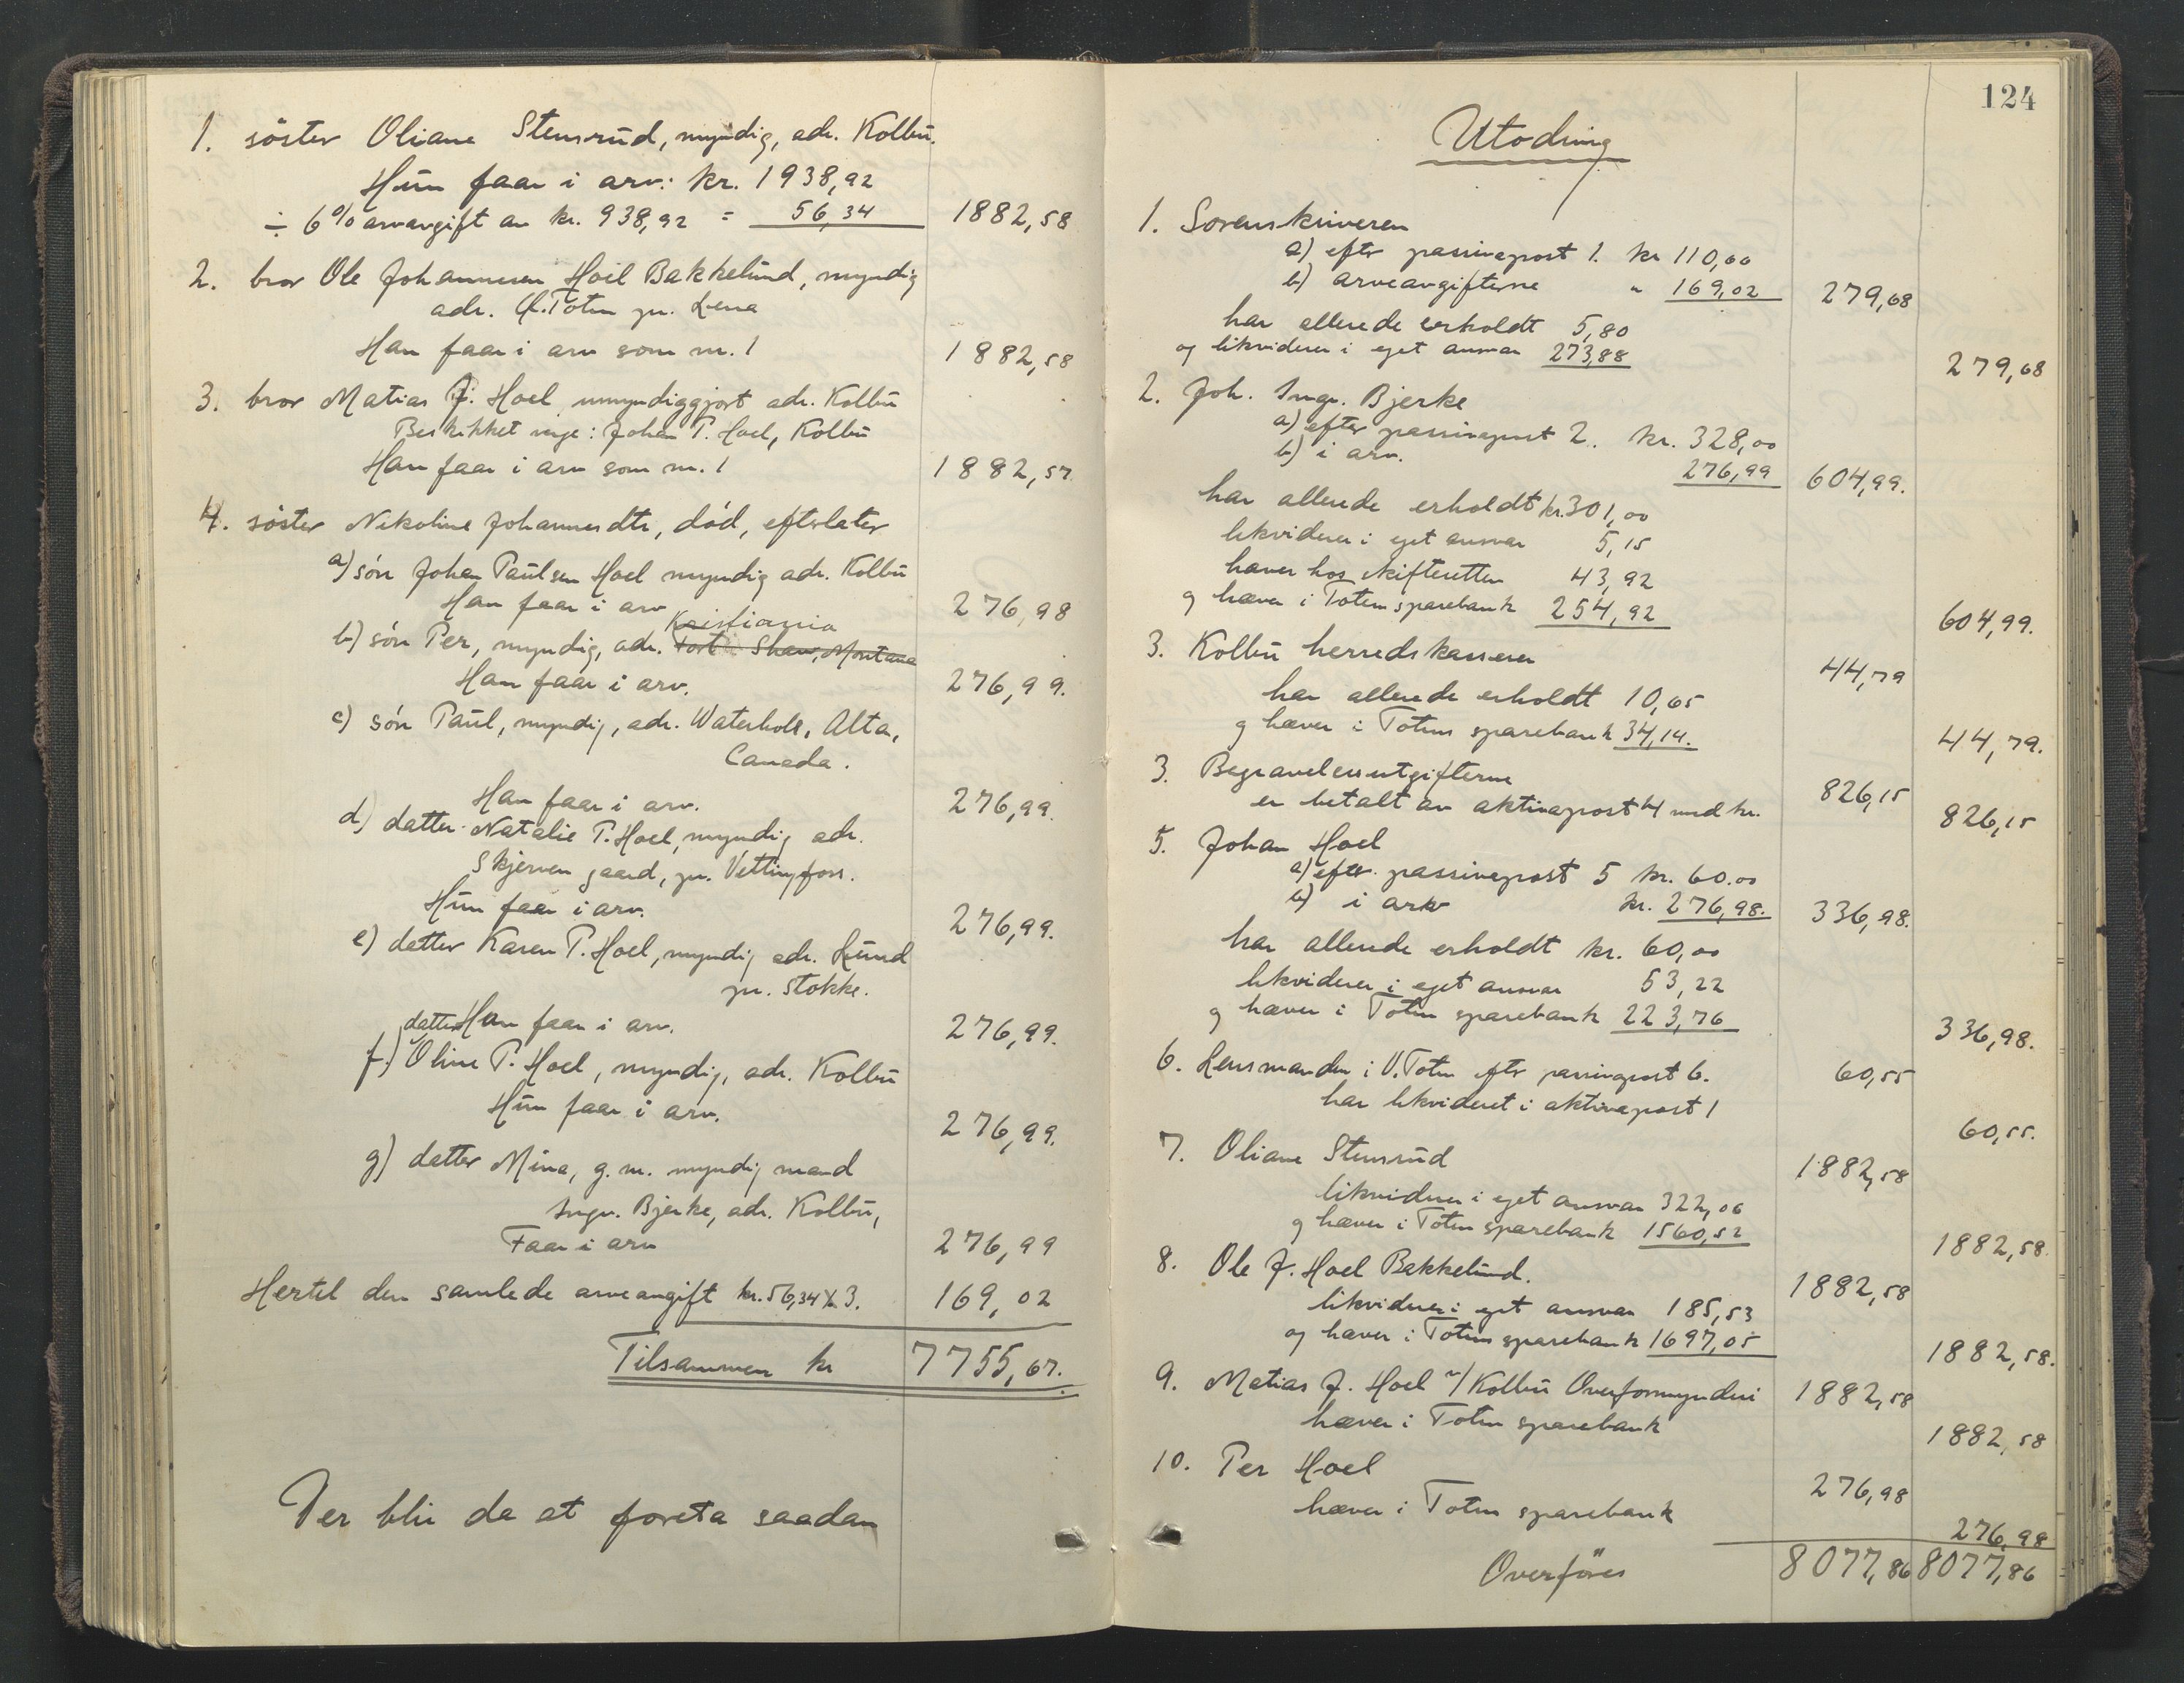 1. söster Oliane Stensrud, myndig, adr. Kolbu.
Hun faar i arv: kr. 1938,92
÷ 6% arvavgift av kr. 938,92 = 56,34 1882,58
2. bror Ole Johannesen Hoel Bakkelund, myndig
adr. Ø.Toten pr. Lena
Han faar i arv som nr. 1 1882,58
3. bror Matias J. Hoel umyndiggjort adr. Kolbu
Beskikket verge: Johan P. Hoel, Kolbu
Han faar i arv som nr. 1 1882,57
4. söster Nikoline Johannesdtr, död, efterlater
a) sön Johan Paulsen Hoel myndig adr. Kolbu
Han faar i arv 276,98
Kristiania
b) sön Per, myndig, adr. Fort Shaw, Montana
Han faar i arv. 276,99.
c) sön Paul, myndig, adr. Waterhole, Alta,
Canada.
Han faar i arv. 276,99.
d) datter Natalie P. Hoel, myndig adr.
Skjerven gaard, pr. Vettingfoss.
Hun faar i arv. 276,99.
e) datter Karen P. Hoel, myndig adr. Lund
pr. Stokke.
Han faar i arv. 276,99.
f.) datter Oline P. Hoel, myndig, adr. Kolbu
Hun faar i arv. 276,99.
g) datter Mina, g.m. myndig mand
Ingv. Bjerke, adr. Kolbu,
Faar i arv 276,99
Hertil den samlede arveavgift kr. 56,34 X 3. 169,02
Tilsammen kr 7755,67.
Der blir da at foreta saadan
124
Utlodning
1. Sorenskriveren
a) efter passivapost 1. kr 110,66
b) arveavgifterne " 169,02 279,68
har allerede erholdt 5,80
og likviderer i eget ansvar 273,88 279,68
2. Joh. Ingv. Bjerke
a) efter passivapost 2. kr. 328,00
b) i arv. 276,99 604,99.
har allerede erholdt kr. 301,00
likviderer i eget ansvar 5,15
hæver hos skifteretten 43,92
og hæver i Totens sparebank 254,92 604,99.
3. Kolbu herredskasserer 44,79
har allerede erholdt 10,65
og hæver i Totens sparebank 34,14. 44,79.
3. Begravelsesutgifterne 826,15
er betalt av aktivapost 4 med kr. 826,15
5. Johan Hoel
a) efter passivapost 5 kr. 60.00
b) i arv kr. 276,98. 336,98.
har allerede erholdt kr. 60,00
likviderer i eget ansvar 53,22
og hæver i Toten sparebank 223,76 336,98.
6. Lensmanden i V.Toten efter passivapost 6. 60,55
har likvideret i aktivapost 1 60,55.
7. Oliane Stensrud 1882,58
likviderer i eget ansvar 322,06
og hæver i Toten sparebank 1560,52 1882,58.
8. Ole J. Hoel Bakkelund. 1882,58
likviderer i eget ansvar 185,53
og hæver i Totens sparebank 1697,05 1882,58.
9. Matias J. Hoel v/ Kolbu Overformynderi 1882,58
hæver i Toten sparebank 1882,58
10. Per Hoel 276,98
hæver i Toten sparebank 276,98
Overföres 8077,86 8077,86